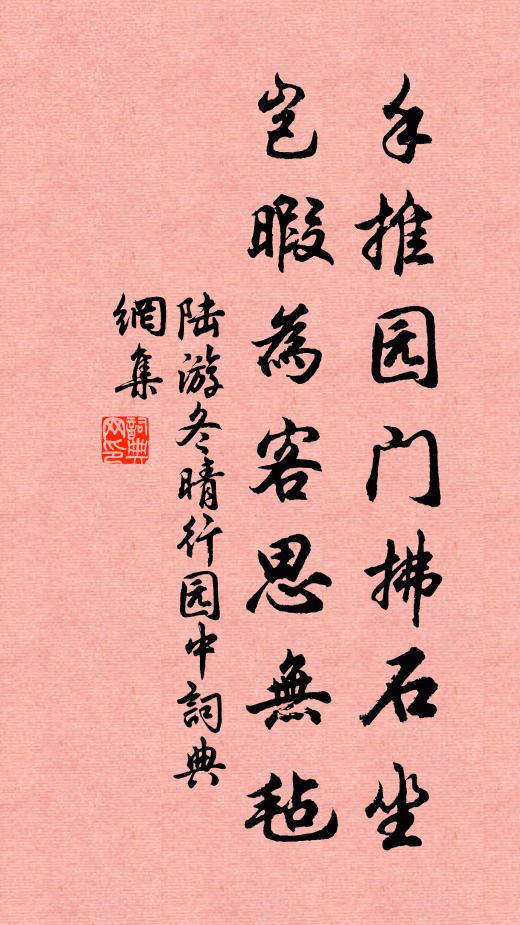 手推园门拂石坐
岂暇為客思無毡
陆游冬晴行园中詞典
網集
詞典
网印